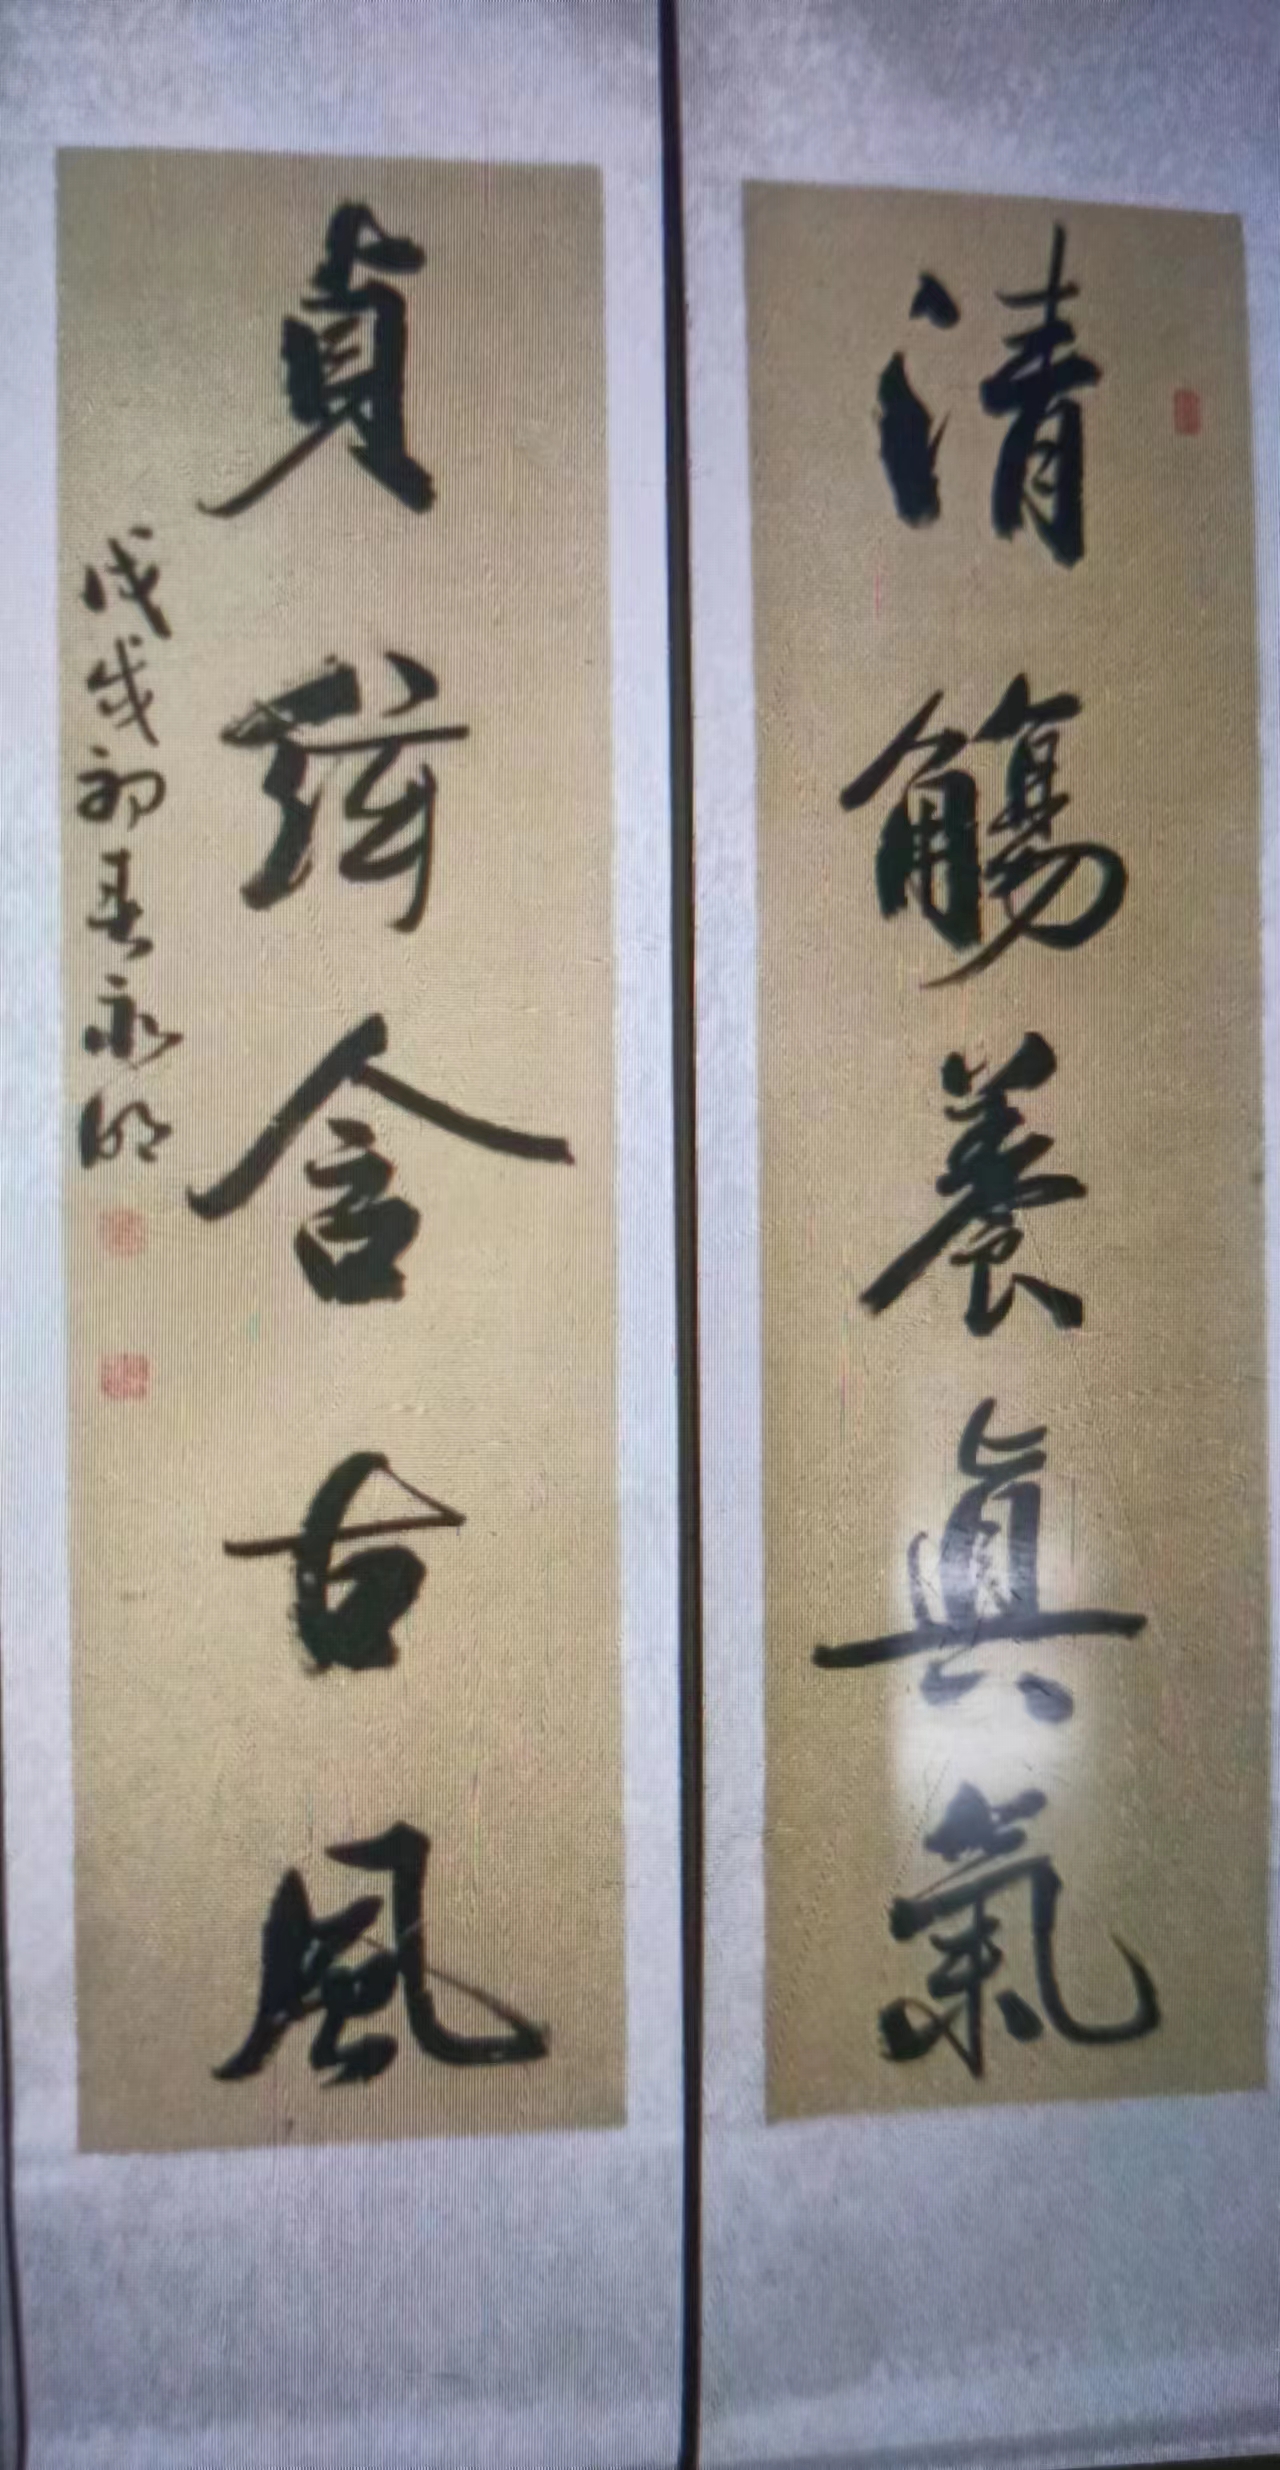 清觴養真氣
貞弦含古風
戊戌初春永明